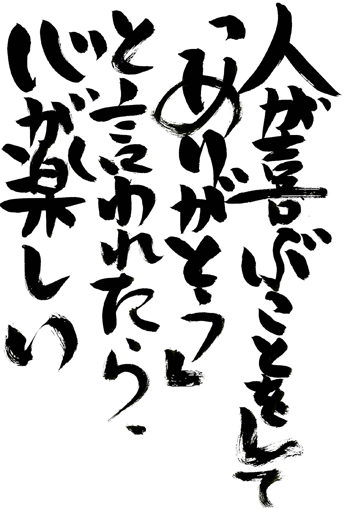 人が喜ぶことをして
「ありがとう」
と言われたら、
心が楽しい